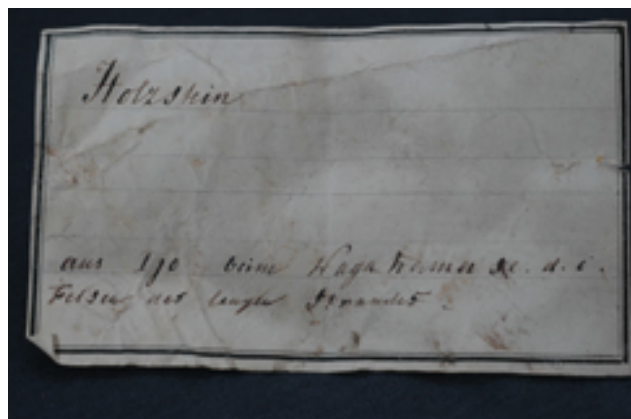 Holzstein
aus Iyo beim Naga hama d. i.
Felsen des langen Strandes.